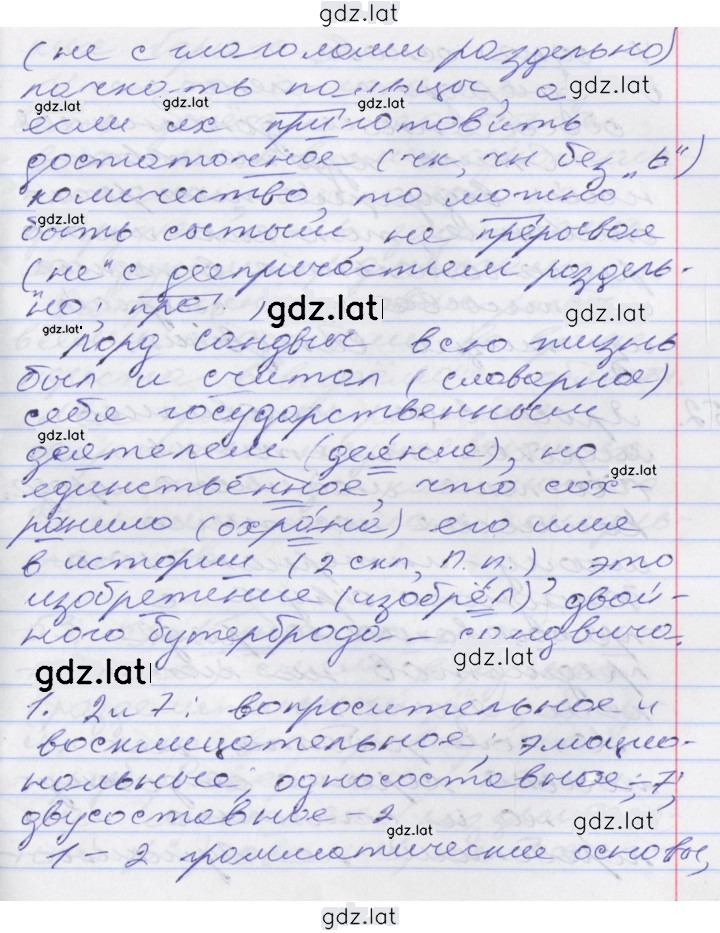 gdz.lat
(не с глаголами раздельно)
пачкать пальцы, а
gdz.lat
gdz.lat
gdz.lat
gdz.lat
если их приготовить
достаточное (чк, чн без „ь“)
количество, то можно
gdz.lat
быть сытым, не прерывая
(„не“ с деепричастием раздель-
но, пре
gdz.lat
gdz.lat
gdz.lat
Лорд Сандвич всю жизнь
был и считал (словарное)
себя государственным
gdz.lat
деятелем (деяние), но
единственное, что сох-
gdz.lat
ранило (охрана) его имя
в истории (2 скл, П.п.) это
изобретение (изобрёл) двой-
ного бутерброда – сандвича.
gdz.lat
gdz.lat
1. 2 и 7: вопросительное и
восклицательное; эмоцио-
нальные; односоставные – 7;
двусоставное – 2
gdz.lat
gdz.lat
1 – 2 грамматические основы,
gdz.lat